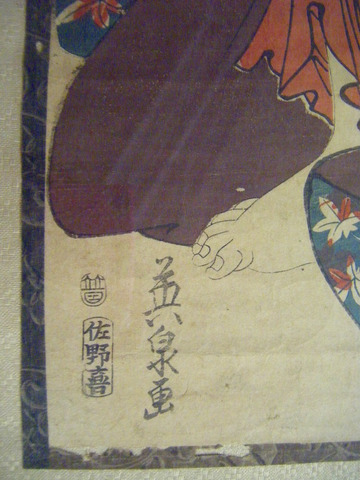 英泉画
佐野喜